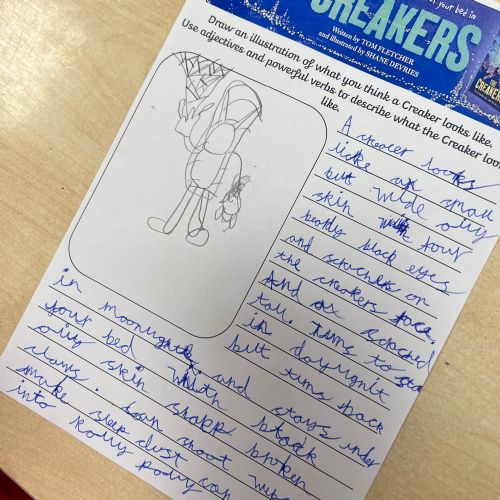 your bed in
CREAKERS
Written by TOM FLETCHER
and illustrated by SHANE DEVRIES
Draw an illustration of what you think a Creaker looks like.
Use adjectives and powerful verbs to describe what the Creaker loo
like.
A creacer looks
like a small
but wide oily
skin with four
beatty black eyes
and scraches on
the creakers face.
And a scached
tail. Turns to
in daylignit
but turns back
in moonlight and stays under
your bed
oily skin With black
claws. sharp broken
can shoot
make sleep dust
into